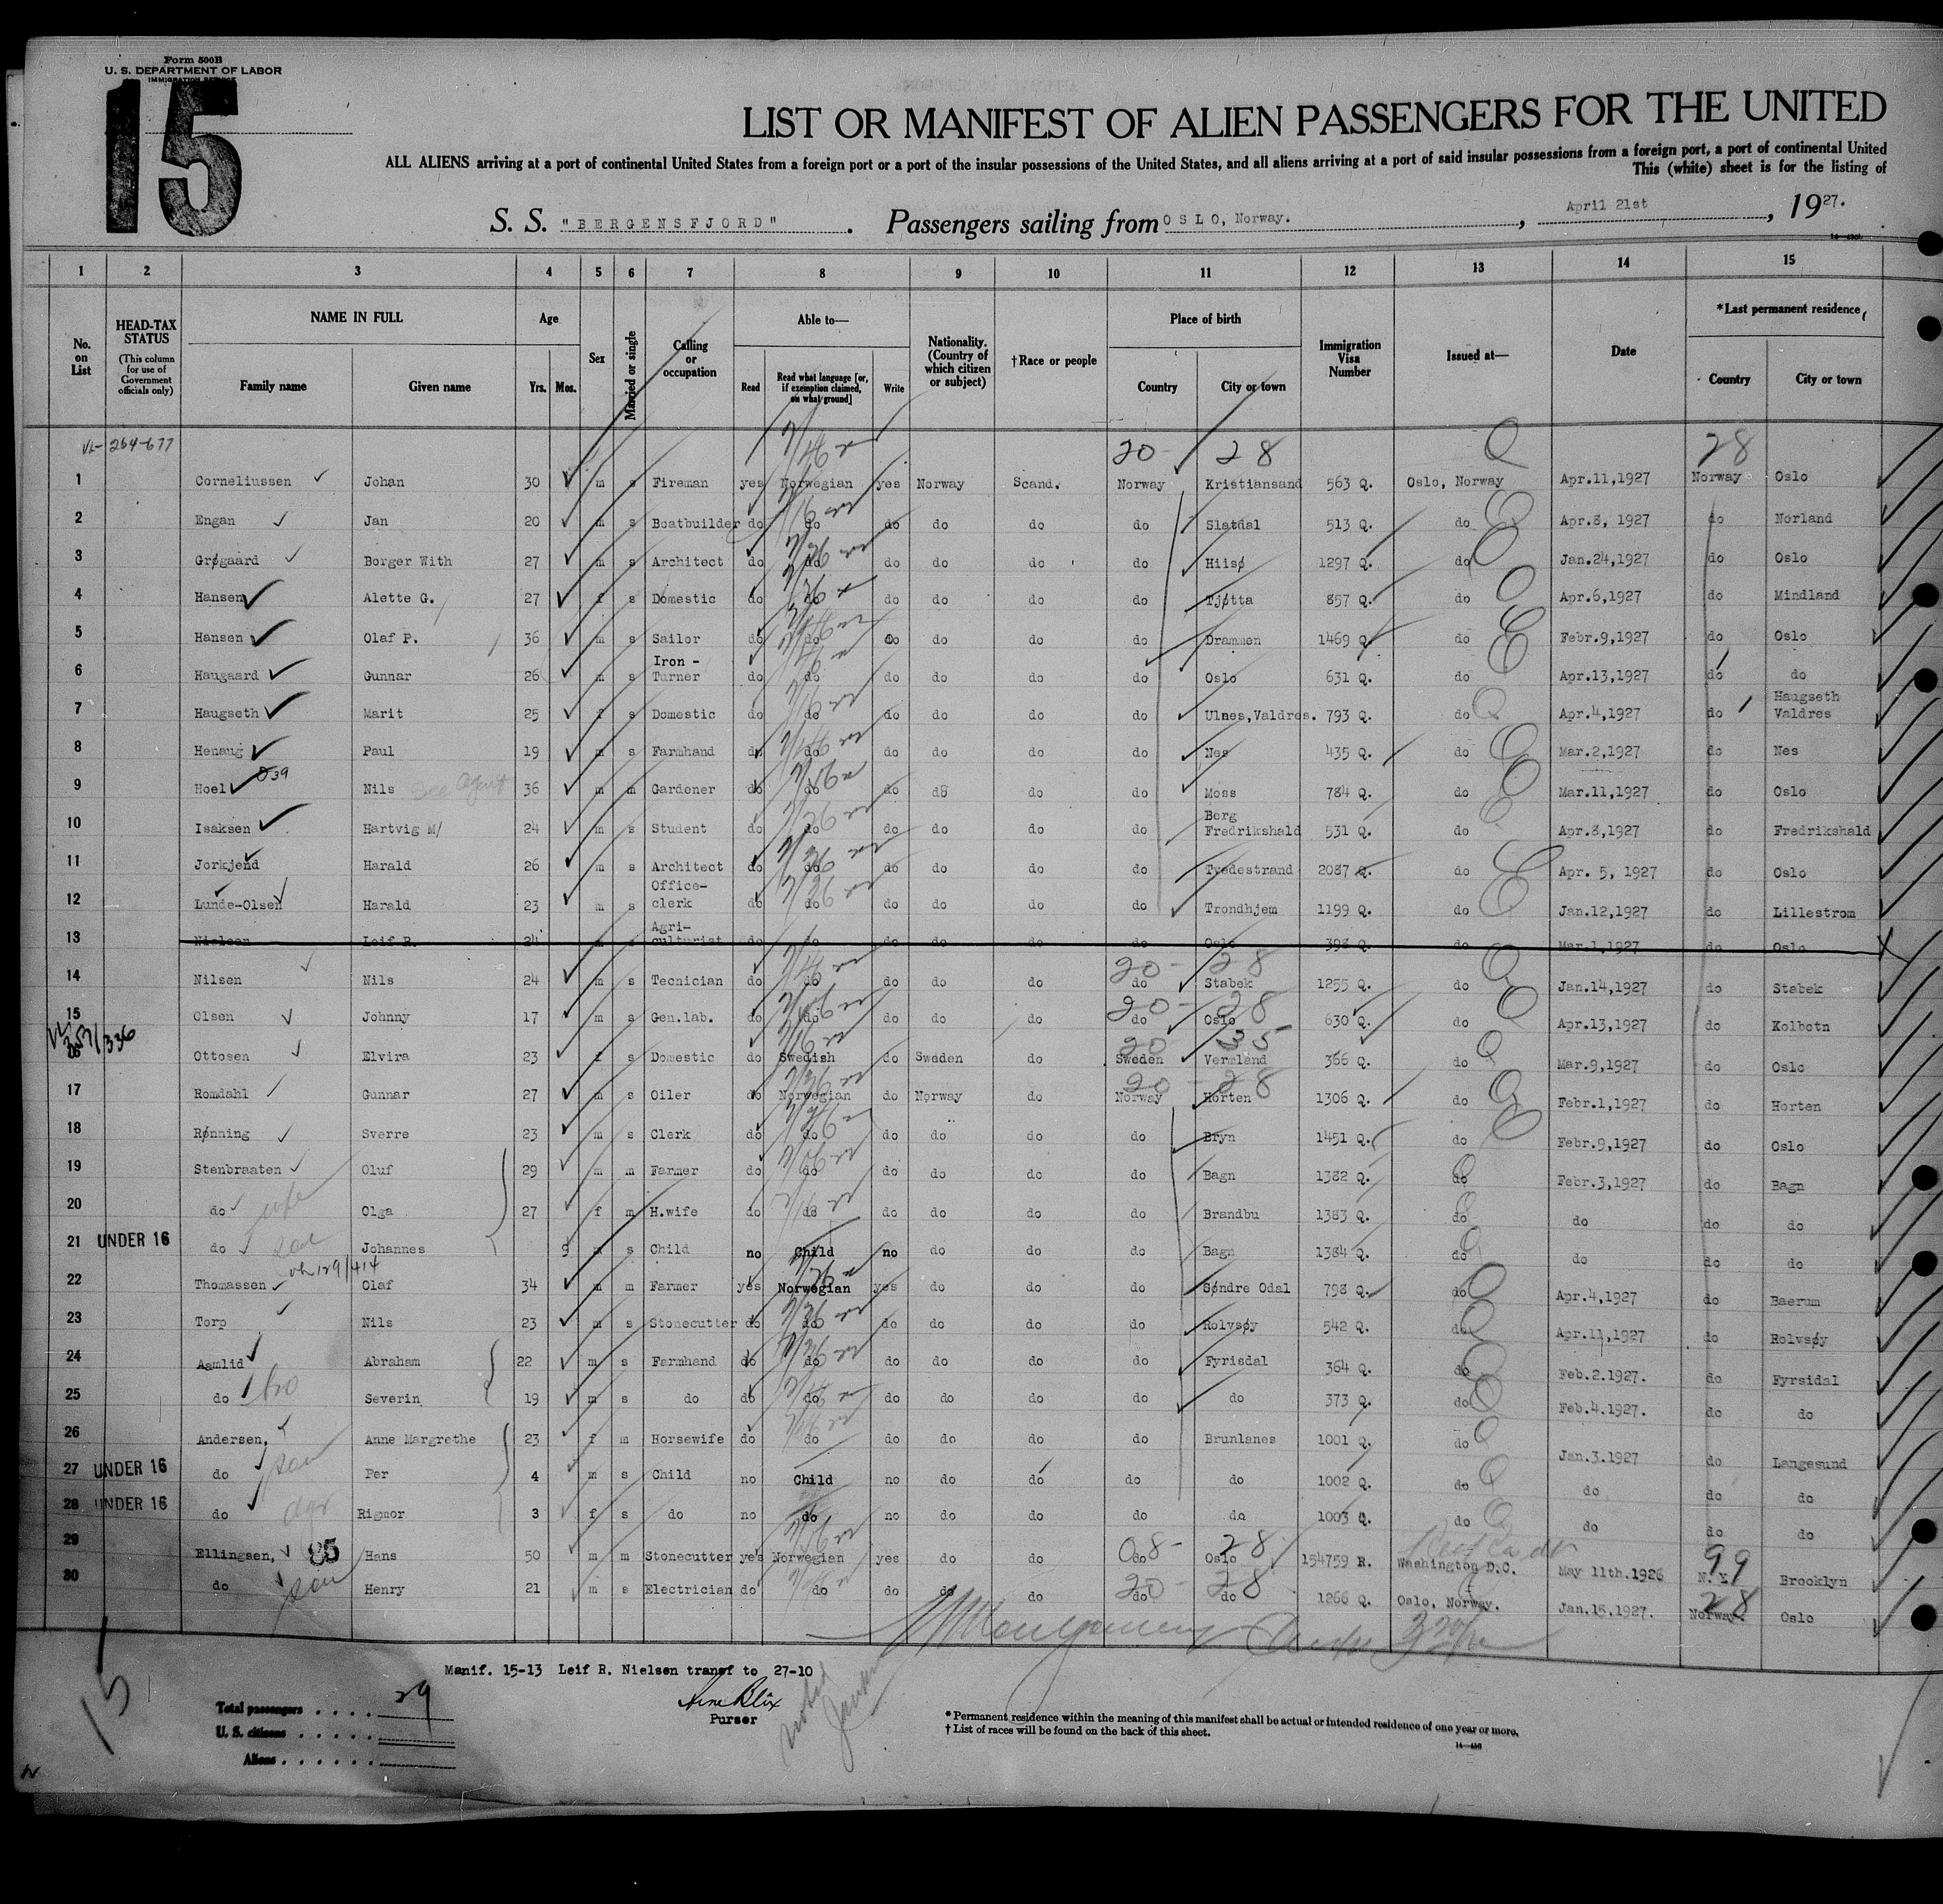 Form 500B
U. S. DEPARTMENT OF LABOR
IMMIGRATION SERVICE
15
LIST OR MANIFEST OF ALIEN PASSENGERS FOR THE UNITED
ALL ALIENS arriving at a port of continental United States from a foreign port or a port of the insular possessions of the United States, and all aliens arriving at a port of said insular possessions from a foreign port, a port of continental United
This (white) sheet is for the listing of
S. S. "BERGENSFJORD". Passengers sailing from OSLO, Norway., April 21st, 1927.
1 2 3 4 5 6 7 8 9 10 11 12 13 14 15
No. on List HEAD-TAX STATUS (This column for use of Government officials only) NAME IN FULL Family name Given name Age Yrs. Mos. Sex Married or single Calling or occupation Able to— Read Read what language [or, if exemption claimed, on what ground] Write Nationality. (Country of which citizen or subject) †Race or people Place of birth Country City or town Immigration Visa Number Issued at— Date *Last permanent residence Country City or town
VL-264-677 20- 28 28
1 Corneliussen Johan 30 m s Fireman yes Norwegian yes Norway Scand. Norway Kristiansand 563 Q. Oslo, Norway Apr.11,1927 Norway Oslo
2 Engan Jan 20 m s Boatbuilder do do do do do do Slatdal 513 Q. do Apr.8, 1927 do Norland
3 Grøgaard Borger With 27 m s Architect do do do do do do Hiisø 1297 Q. do Jan.24,1927 do Oslo
4 Hansen Alette G. 27 f s Domestic do do do do do do Tjøtta 857 Q. do Apr.6,1927 do Mindland
5 Hansen Olaf P. 36 m s Sailor do do do do do do Drammen 1469 Q. do Febr.9,1927 do Oslo
6 Haugaard Gunnar 26 m s Iron-Turner do do do do do do Oslo 631 Q. do Apr.13,1927 do do
7 Haugseth Marit 25 f s Domestic do do do do do do Ulnes,Valdres. 793 Q. do Apr.4,1927 do Haugseth Valdres
8 Henaug Paul 19 m s Farmhand do do do do do do Nes 435 Q. do Mar.2,1927 do Nes
9 Hoel Nils 36 m m Gardener do do do do do do Moss 784 Q. do Mar.11,1927 do Oslo
10 Isaksen Hartvig M/ 24 m s Student do do do do do do Berg Fredrikshald 531 Q. do Apr.8,1927 do Fredrikshald
11 Jorkjend Harald 26 m s Architect do do do do do do Tvedestrand 2087 Q. do Apr. 5, 1927 do Oslo
12 Lunde-Olsen Harald 23 m s Office-clerk do do do do do do Trondhjem 1199 Q. do Jan.12,1927 do Lillestrom
13 Nielsen Leif R. 24 m s Agri-culturist do do do do do do Oslo 398 Q. do Mar.1,1927 do Oslo
20- 28
14 Nilsen Nils 24 m s Tecnician do do do do do do Stabek 1255 Q. do Jan.14,1927 do Stabek
20- 28
15 Olsen Johnny 17 m s Gen.lab. do do do do do do Oslo 630 Q. do Apr.13,1927 do Kolbotn
20 35
Ottosen Elvira 23 f s Domestic do Swedish do Sweden do Sweden Vermland 366 Q. do Mar.9,1927 do Oslo
20 - 28
17 Romdahl Gunnar 27 m s Oiler do Norwegian do Norway do Norway Horten 1306 Q. do Febr.1,1927 do Horten
18 Rønning Sverre 23 m s Clerk do do do do do do Bryn 1451 Q. do Febr.9,1927 do Oslo
19 Stenbraaten Oluf 29 m m Farmer do do do do do do Bagn 1382 Q. do Febr.3,1927 do Bagn
20 do wife Olga 27 f m H.wife do do do do do do Brandbu 1383 Q. do do do do
21 UNDER 16 do son Johannes 9 m s Child no Child no do do do Bagn 1384 Q. do do do do
22 Thomassen Olaf 34 m m Farmer yes Norwegian yes do do do Søndre Odal 798 Q. do Apr.4,1927 do Baerum
23 Torp Nils 23 m s Stonecutter do do do do do do Rolvsøy 542 Q. do Apr.11,1927 do Rolvsøy
24 Aamlid Abraham 22 m s Farmhand do do do do do do Fyrisdal 364 Q. do Feb.2.1927. do Fyrsidal
25 do bro Severin 19 m s do do do do do do do do 373 Q. do Feb.4.1927. do do
26 Andersen, Anne Margrethe 23 f m Horsewife do do do do do do Brunlanes 1001 Q. do Jan.3.1927 do Langesund
27 UNDER 16 do son Per 4 m s Child no Child no do do do do 1002 Q. do do do do
28 UNDER 16 do dgr Rigmor 3 f s do no do no do do do do 1003 Q. do do do do
08- 28 99
29 Ellingsen, 85 Hans 50 m m Stonecutter yes Norwegian yes do do do Oslo 154759 R. Washington D.C. May 11th.1926 N.Y. Brooklyn
20- 28 28
30 do son Henry 21 m s Electrician do do do do do do do 1266 Q. Oslo, Norway. Jan.15.1927. Norway Oslo
Manif. 15-13 Leif R. Nielsen transf to 27-10
Arne Blix
Purser
15
Total passengers . . . . 29
U. S. citizens . . . . .
Aliens . . . . . .
* Permanent residence within the meaning of this manifest shall be actual or intended residence of one year or more.
† List of races will be found on the back of this sheet.